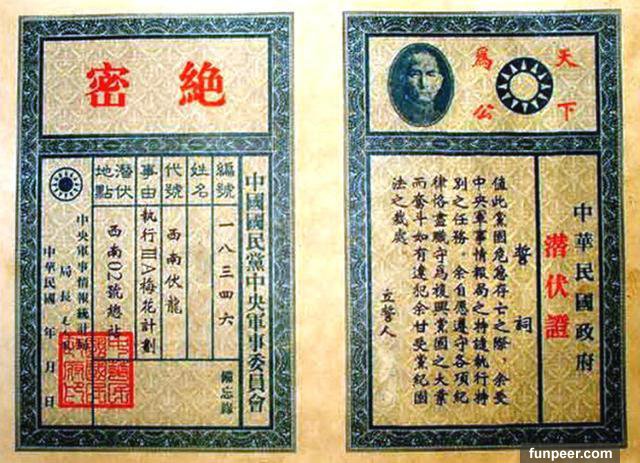 絕密
中國國民黨中央軍事委員會
備忘錄
編號 一八三四六
姓名
代號 西南伏龍
事由 執行IIIA梅花計劃
潛伏地點 西南02號總站
中央軍事情報統計局
局長
中華民國 年 月 日
天下
為公
中華民國政府
潛伏證
誓詞
值此黨國危急存亡之際,余受
中央軍事情報局之特 執行特
別之任務,余自愿遵守各項紀
律恪盡職守為複興黨國之大業
而奮斗如有違犯余甘受黨紀國
法之裁處。
立誓人
funpeer.com